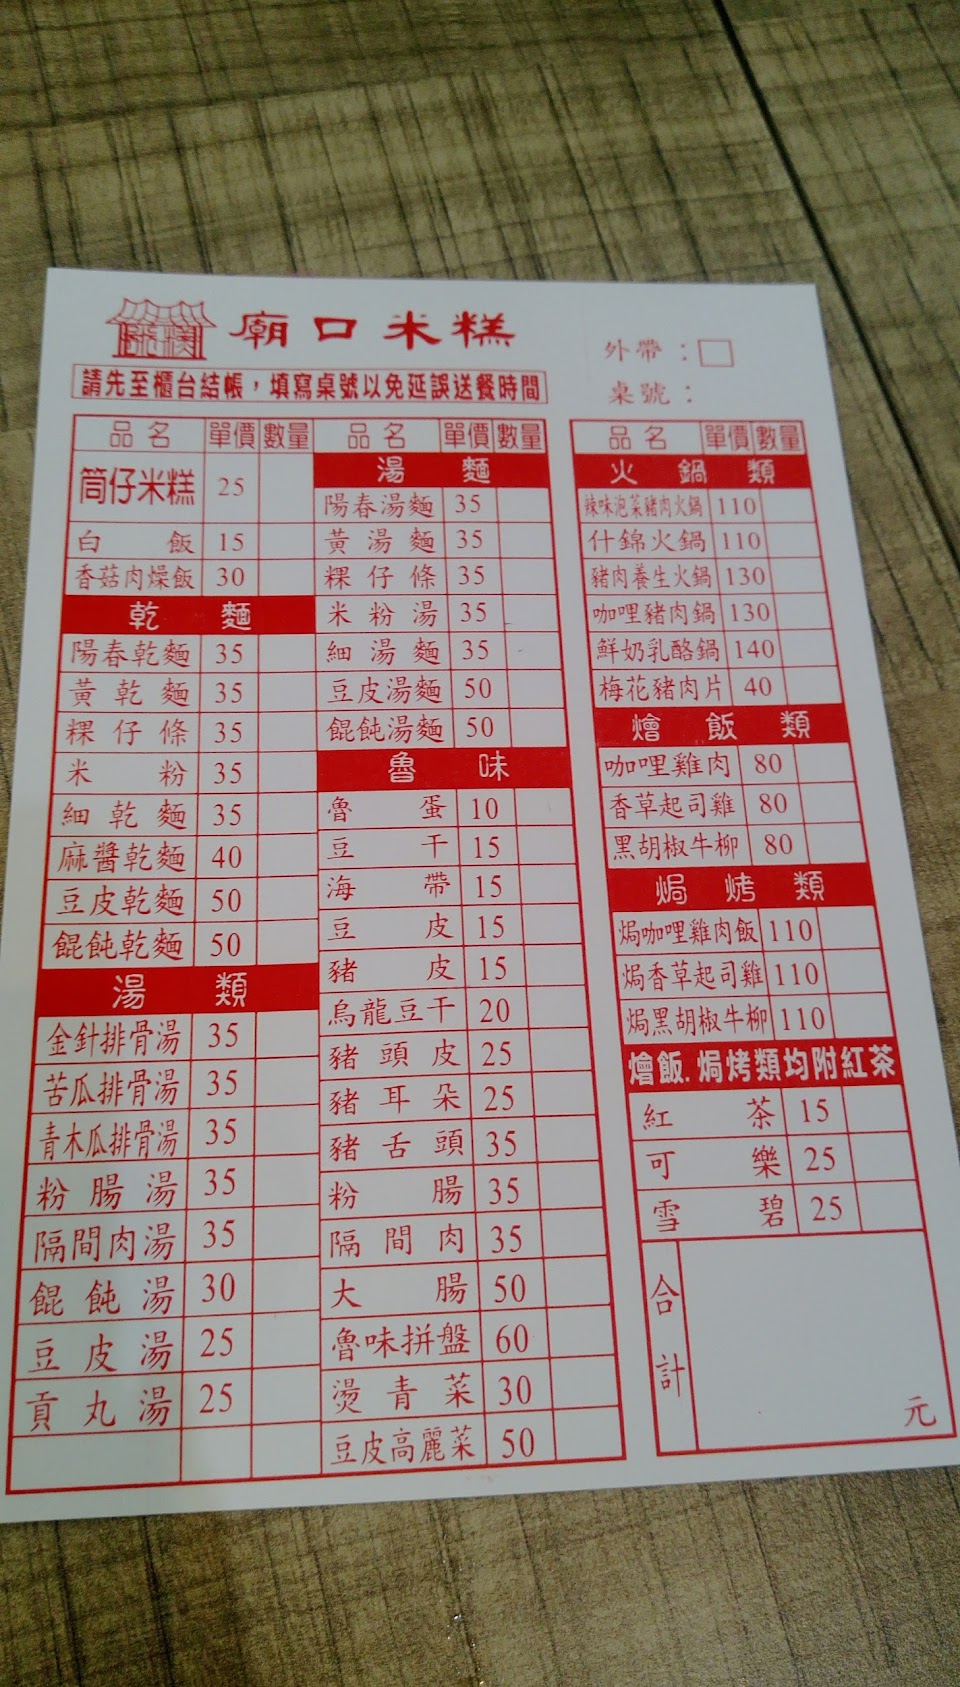 廟口米糕
外帶：□
請先至櫃台結帳，填寫桌號以免延誤送餐時間
桌號：
品名 單價 數量
筒仔米糕 25
白飯 15
香菇肉燥飯 30
乾麵
陽春乾麵 35
黃乾麵 35
粿仔條 35
米粉 35
細乾麵 35
麻醬乾麵 40
豆皮乾麵 50
餛飩乾麵 50
湯類
金針排骨湯 35
苦瓜排骨湯 35
青木瓜排骨湯 35
粉腸湯 35
隔間肉湯 35
餛飩湯 30
豆皮湯 25
貢丸湯 25
品名 單價 數量
湯麵
陽春湯麵 35
黃湯麵 35
粿仔條 35
米粉湯 35
細湯麵 35
豆皮湯麵 50
餛飩湯麵 50
魯味
魯蛋 10
豆干 15
海帶 15
豆皮 15
豬皮 15
烏龍豆干 20
豬頭皮 25
豬耳朵 25
豬舌頭 35
粉腸 35
隔間肉 35
大腸 50
魯味拼盤 60
燙青菜 30
豆皮高麗菜 50
品名 單價 數量
火鍋類
辣味泡菜豬肉火鍋 110
什錦火鍋 110
豬肉養生火鍋 130
咖哩豬肉鍋 130
鮮奶乳酪鍋 140
梅花豬肉片 40
燴飯類
咖哩雞肉 80
香草起司雞 80
黑胡椒牛柳 80
焗烤類
焗咖哩雞肉飯 110
焗香草起司雞 110
焗黑胡椒牛柳 110
燴飯.焗烤類均附紅茶
紅茶 15
可樂 25
雪碧 25
合計
元